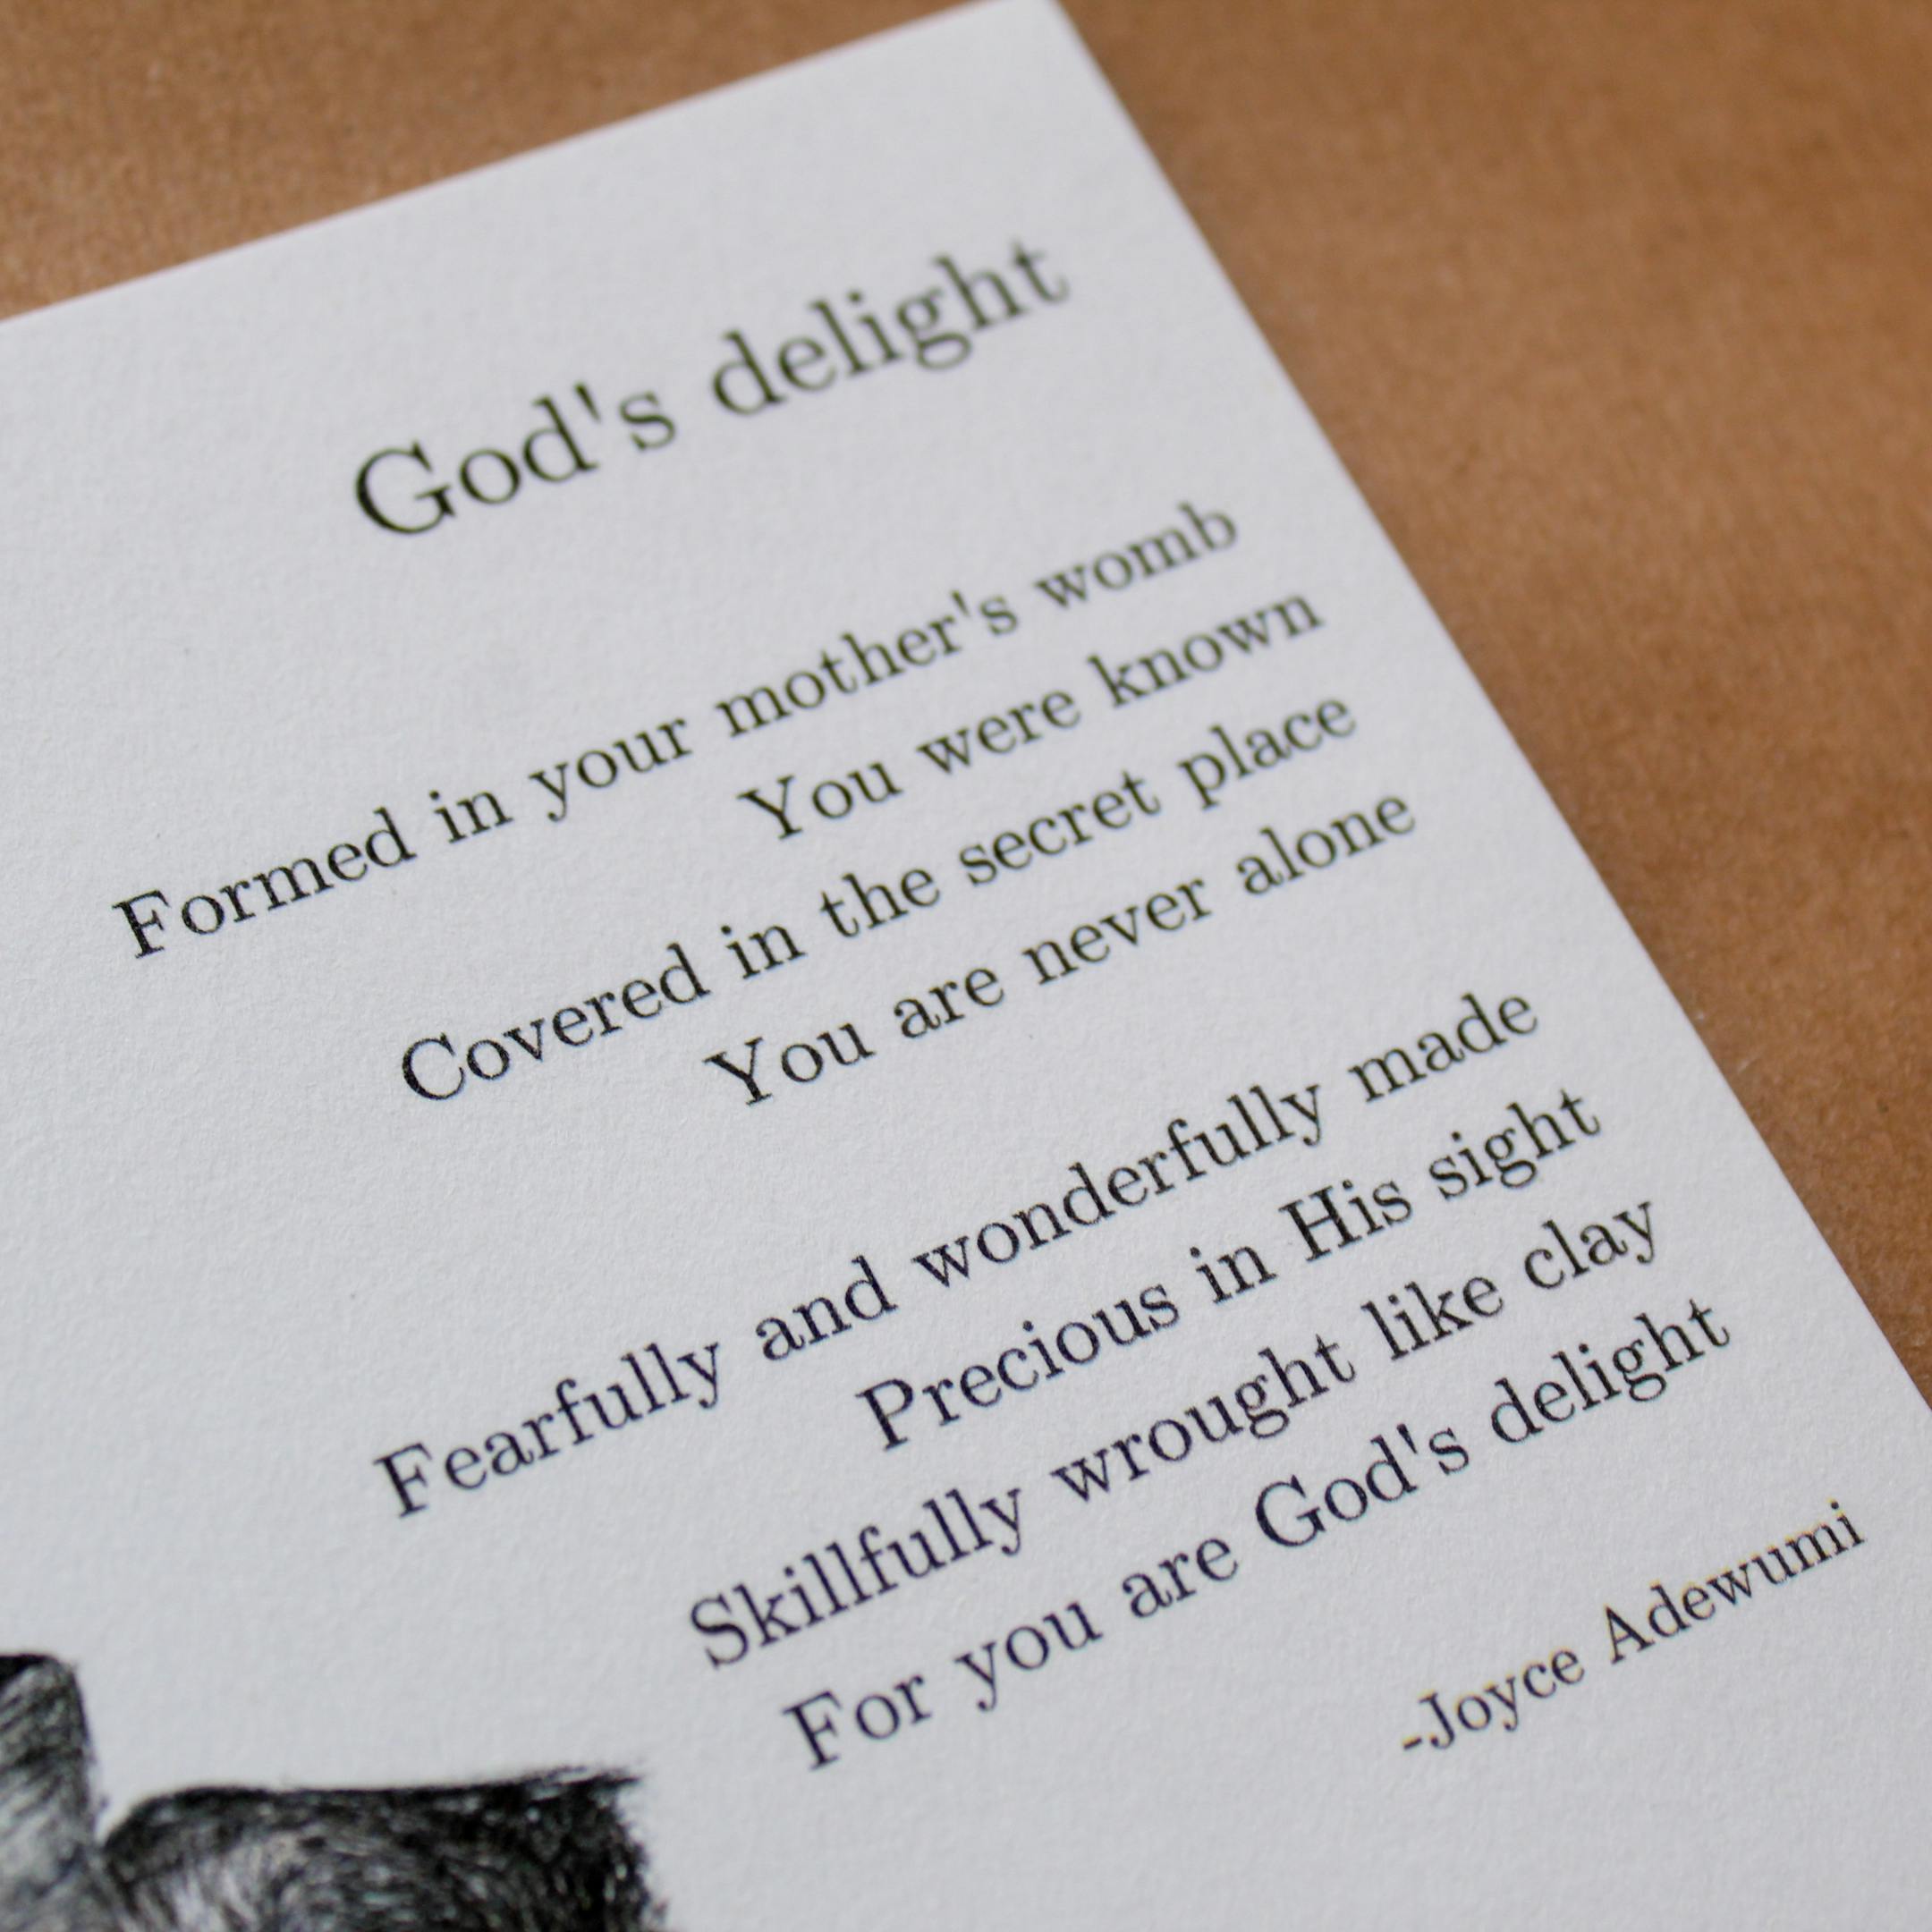 God's delight
Formed in your mother's womb
You were known
Covered in the secret place
You are never alone
Fearfully and wonderfully made
Precious in His sight
Skillfully wrought like clay
For you are God's delight
-Joyce Adewumi